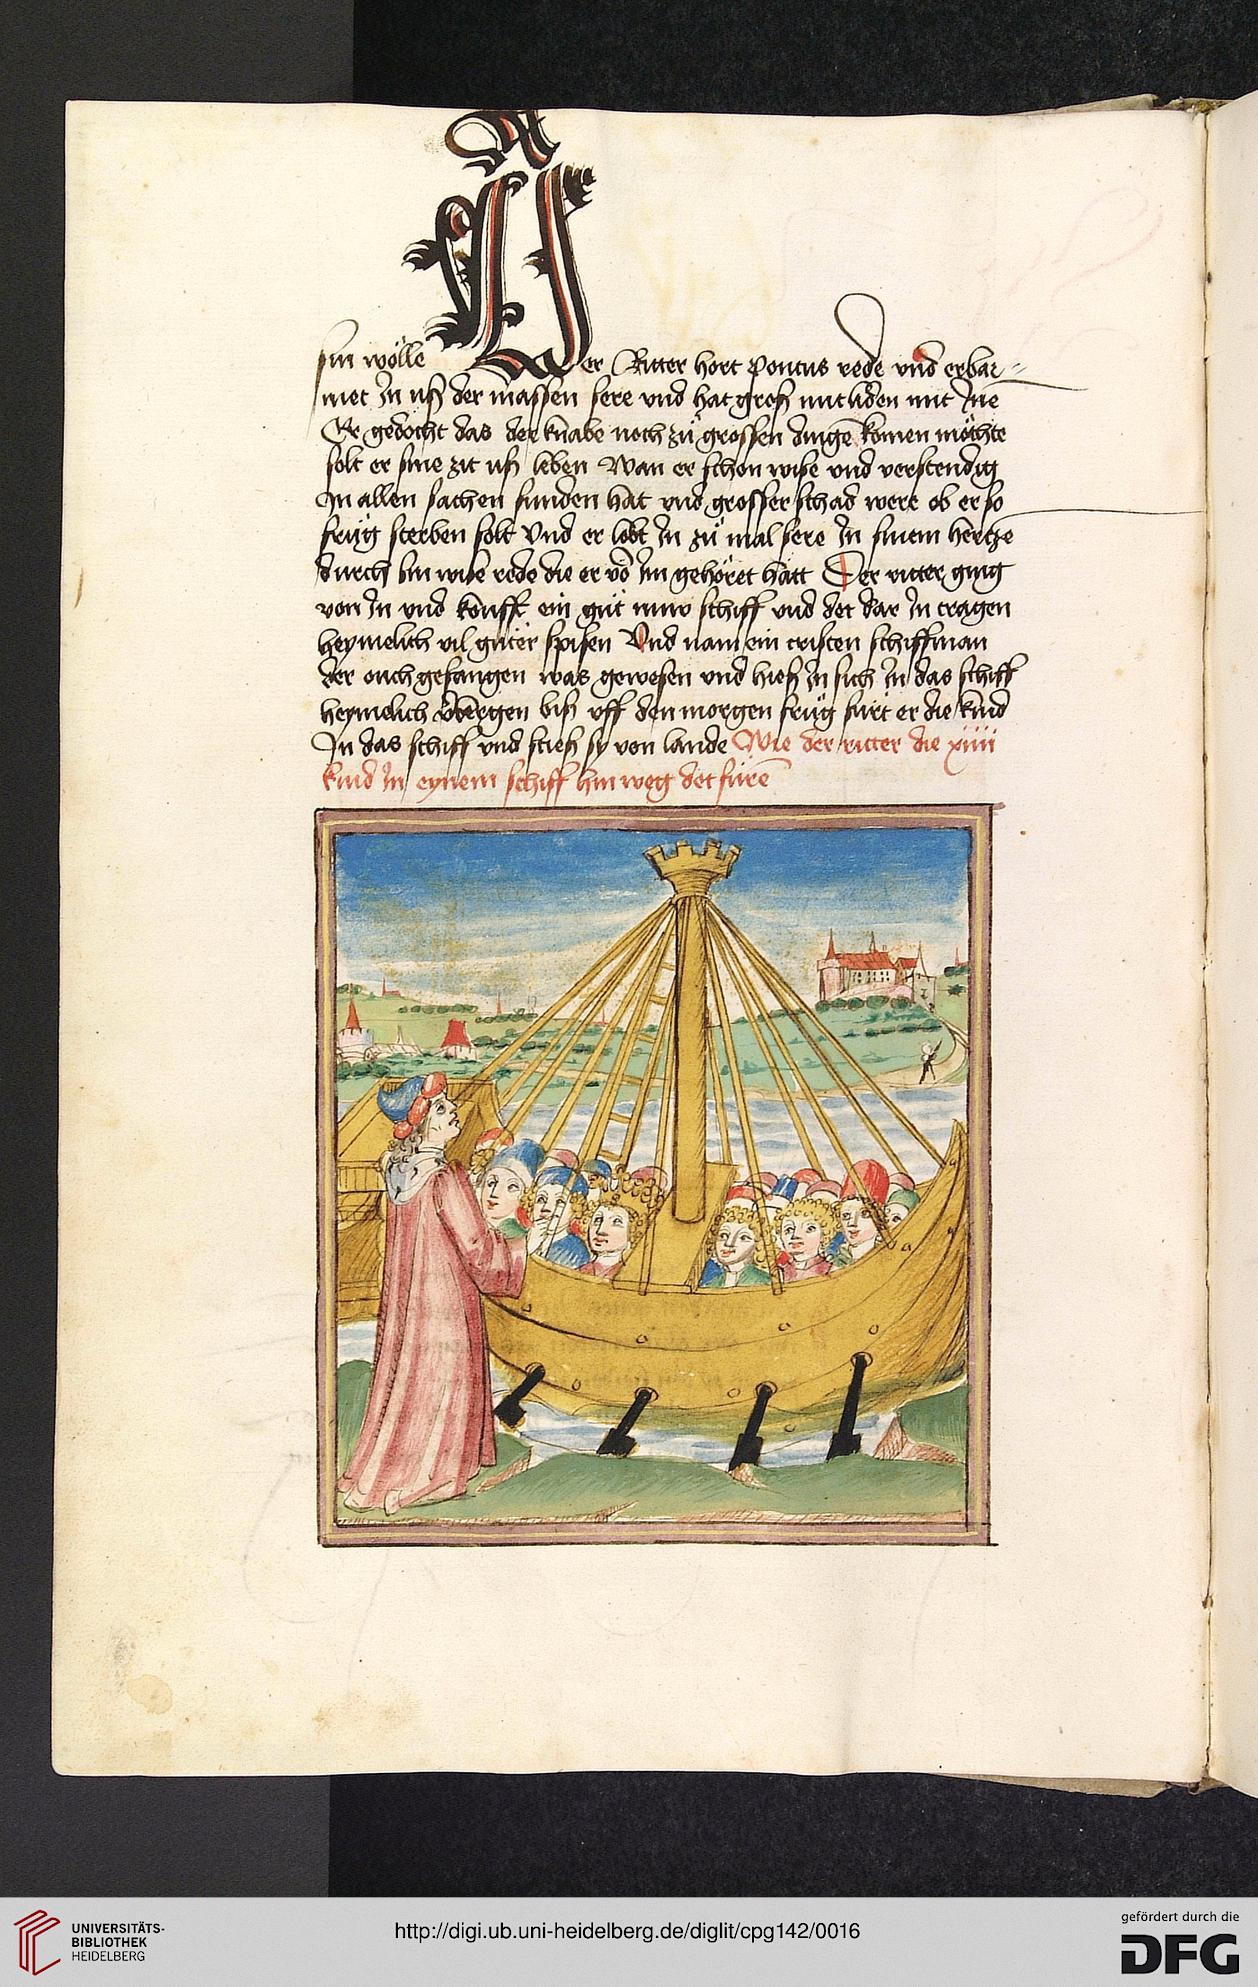 sin wölle Der Ritter hort pontus rede vnd erbar=
met In vß der massen sere vnd hat groß mitliden mit Ine
Er gedocht das der knabe noch zů grossen dingē komen möchte
solt er sine zit vß leben Wan er schon wise vnd verstendig
In allen sachen funden hat vnd grosser schad were ob er so
frůg sterben solt Vnd er lobt In zů mal sere In sinem hertze
durch sin wise rede die er vō Im gehöret hatt Der ritter ging
von In vnd koufft ein gůt nuw schiff vnd det dar In tragen
heymelich vil gůter spisen Vnd nam ein cristen schiffman
der ouch gefangen was gewesen vnd hieß In sich In das schiff
heymelich v̄bergen biß vff den morgen frůg fůrt er die kind
In das schiff vnd stieß sy von lande Wie der ritter die xiiii
kind In eynem schiff hin weg det fůrē
UNIVERSITÄTS-
BIBLIOTHEK
HEIDELBERG
http://digi.ub.uni-heidelberg.de/diglit/cpg142/0016
gefördert durch die
DFG